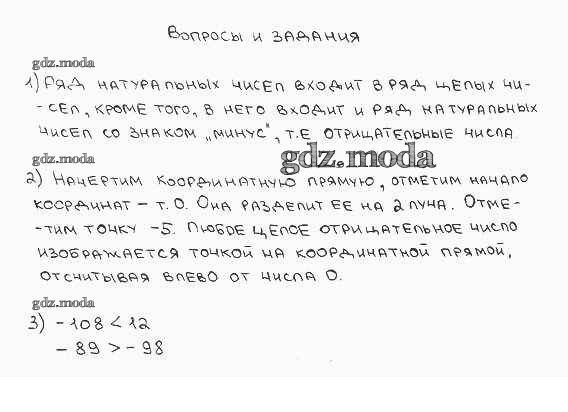 Вопросы и задания
gdz.moda
1) Ряд натуральных чисел входит в ряд целых чи-
-сел, кроме того, в него входит и ряд натуральных
чисел со знаком „минус", т.е отрицательные числа
gdz.moda
gdz.moda
2) Начертим координатную прямую, отметим начало
координат – т. О. Она разделит ее на 2 луча. Отме-
-тим точку -5. Любое целое отрицательное число
изображается точкой на координатной прямой,
отсчитывая влево от числа 0.
gdz.moda
3) -108 < 12
-89 > -98